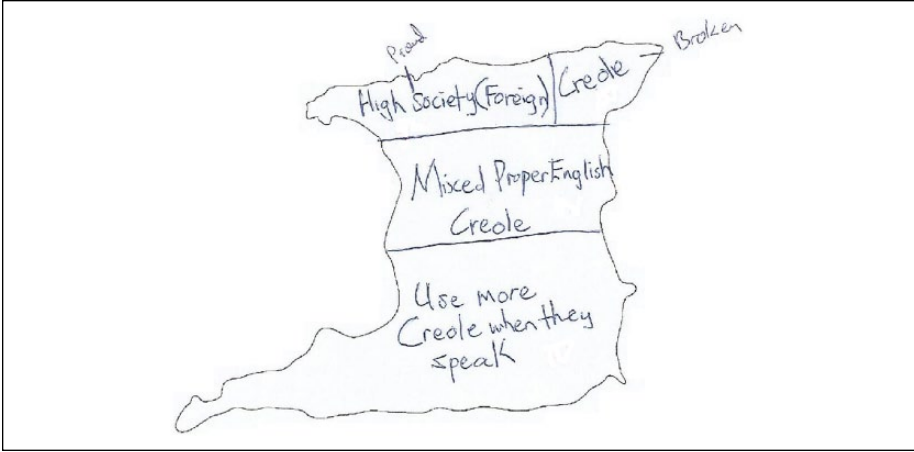 Proud
Broken
High Society (Foreign)
Creole
Mixed Proper English
Creole
Use more
Creole when they
speak